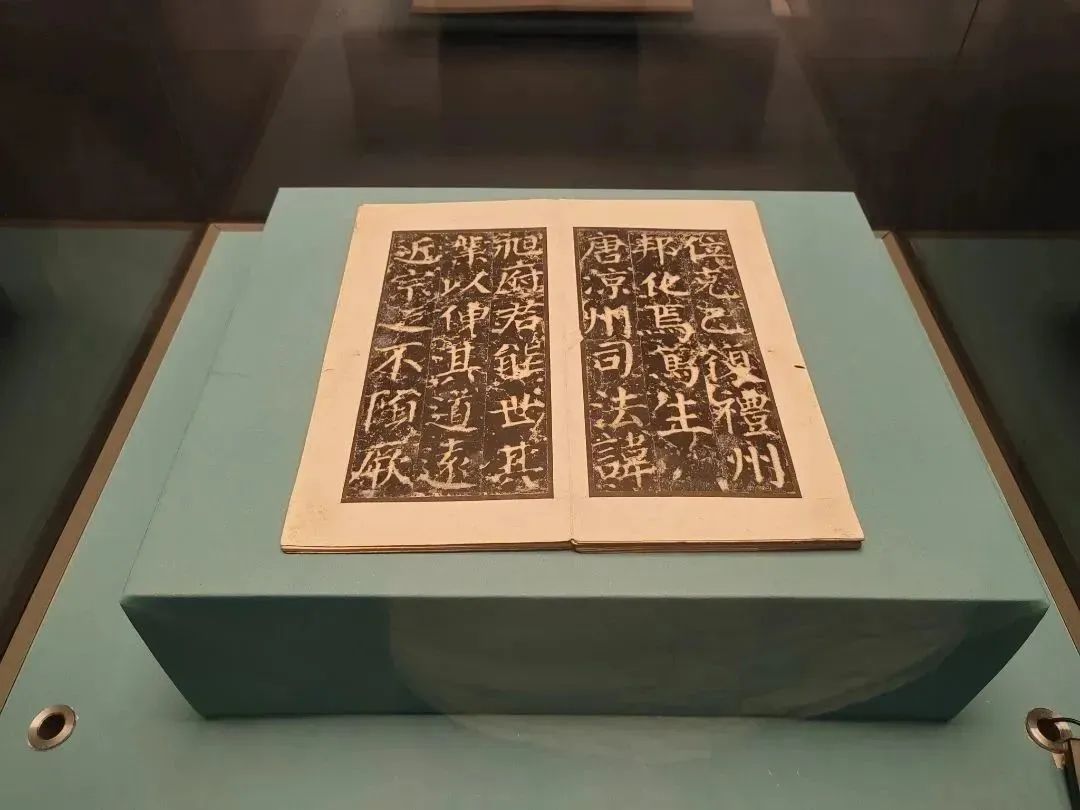 位克己復禮州
邦化焉篤生
唐涼州司法諱
昶府君能世其
業以伸其道遠
近宗之不隕厥